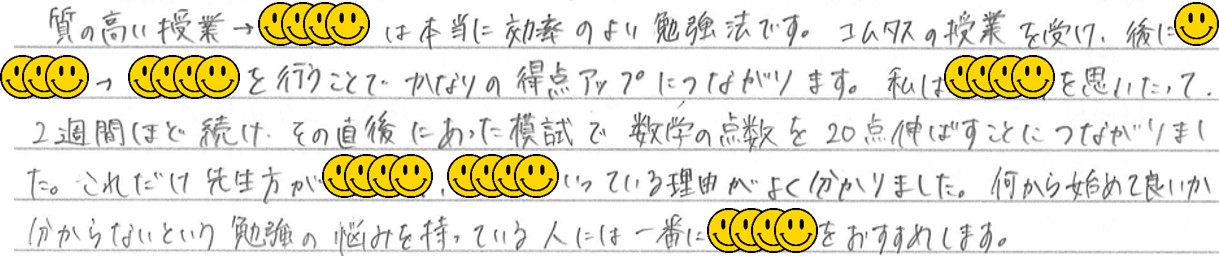 質の高い授業→は本当に効率のよい勉強法です。コムタスの授業を受け、後に
→を行うことでかなりの得点アップにつながります。私はを思いたって、
2週間ほど続け、その直後にあった模試で数学の点数を20点伸ばすことにつながりまし
た。これだけ先生方が、いっている理由がよく分かりました。何から始めて良いか
分からないという勉強の悩みを持っている人には一番にをおすすめします。